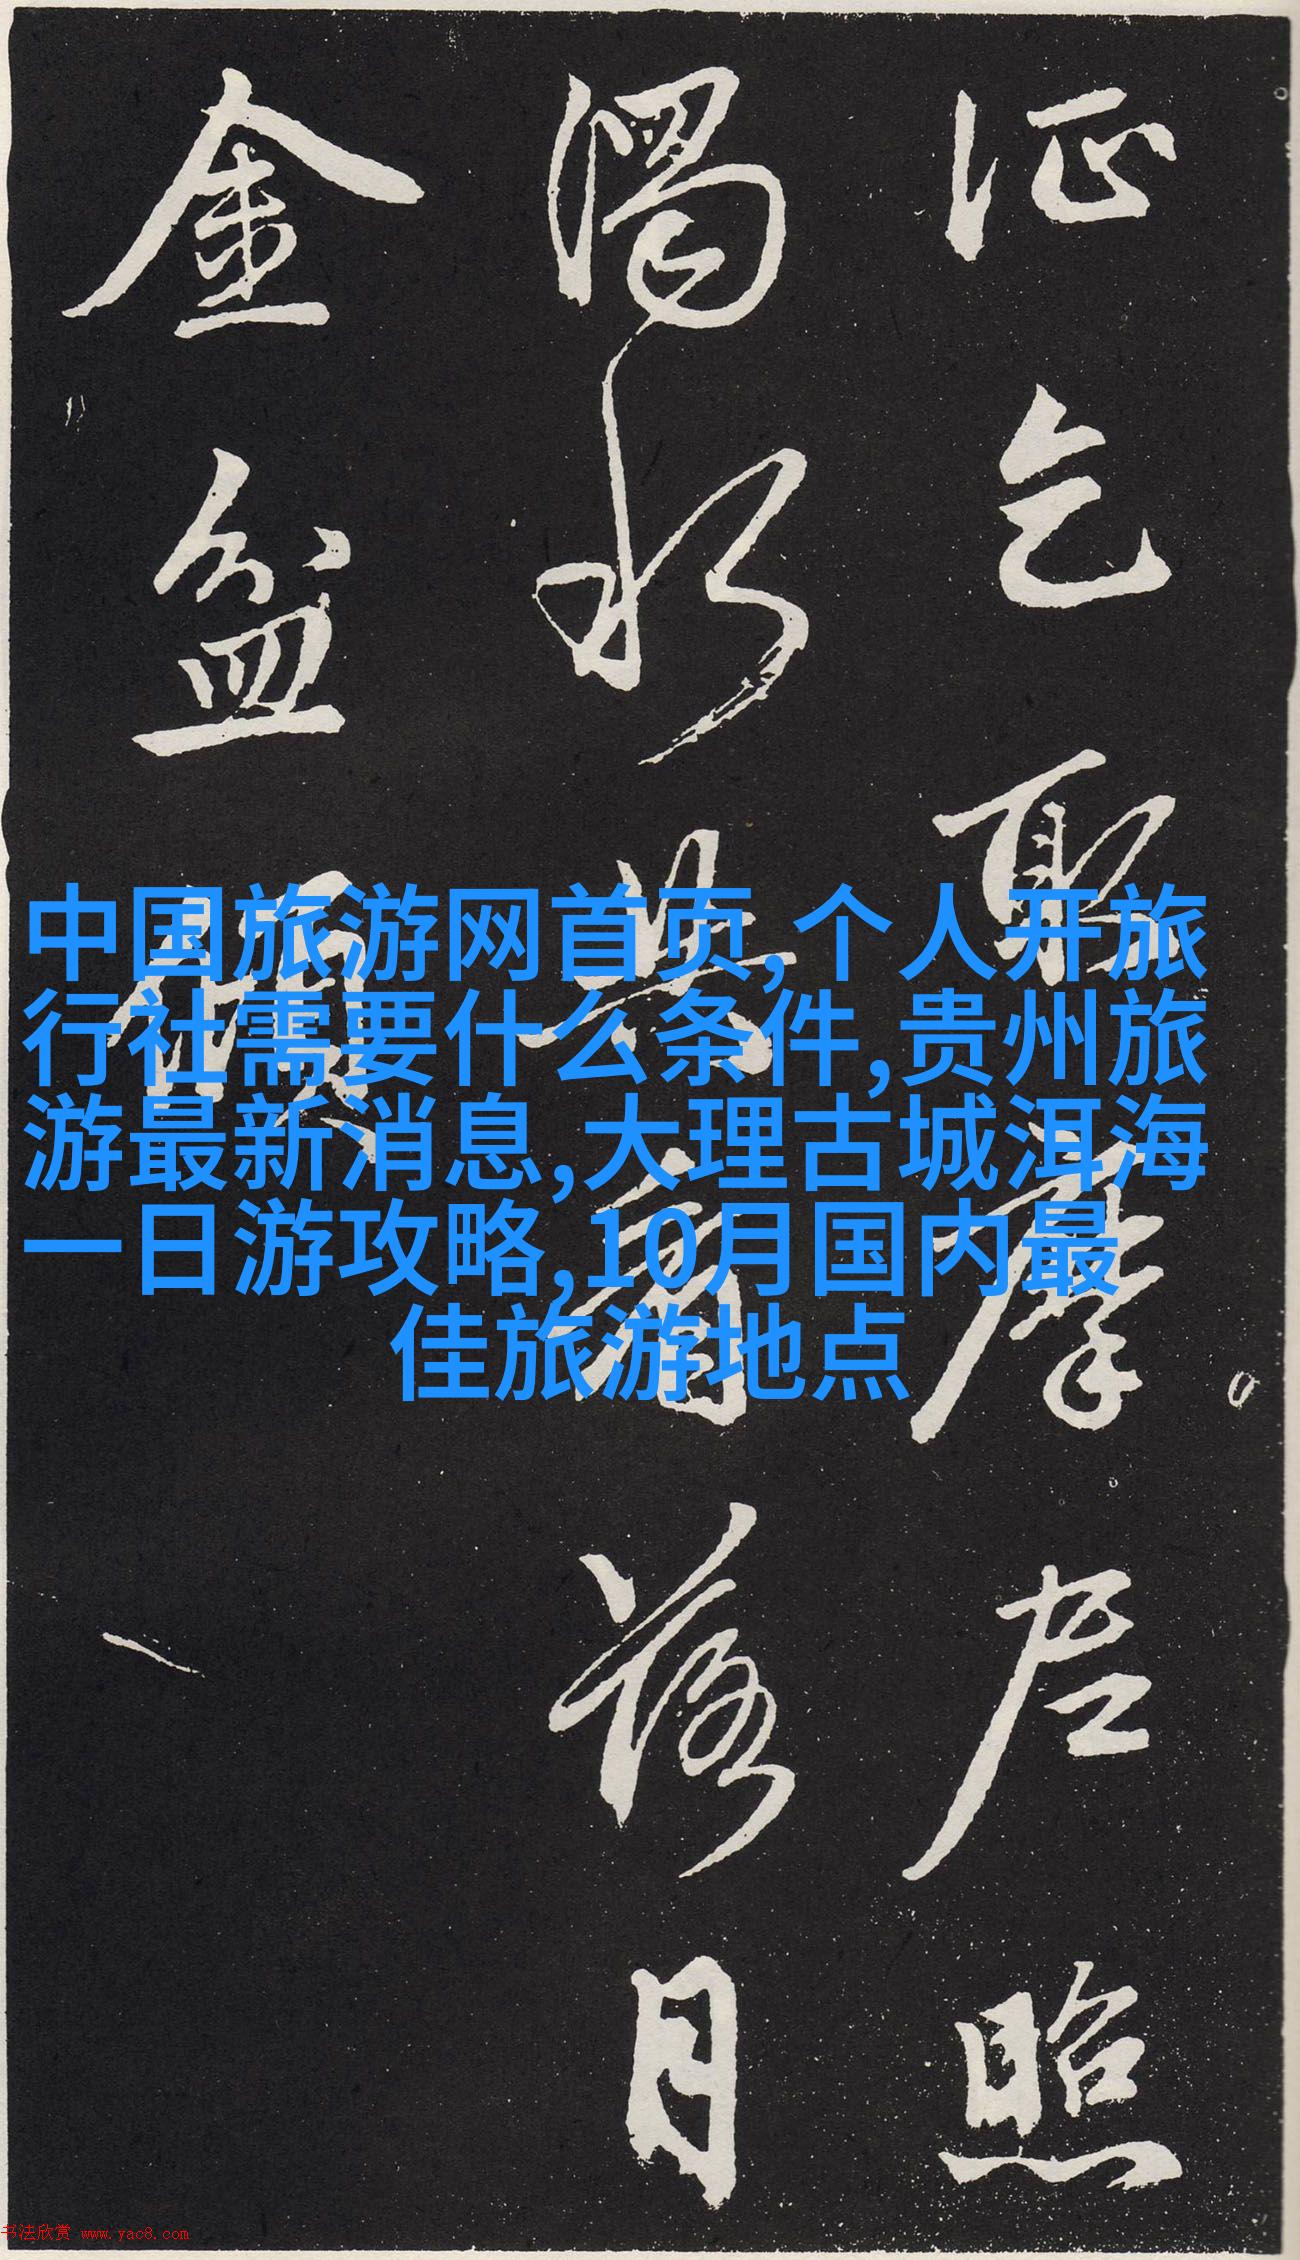 乞聊摩左照
濁水共有落月
金盆
中国旅游网首页,个人开旅
行社需要什么条件,贵州旅
游最新消息,大理古城洱海
一日游攻略,10月国内最
佳旅游地点
书法欣赏 www.yac8.com